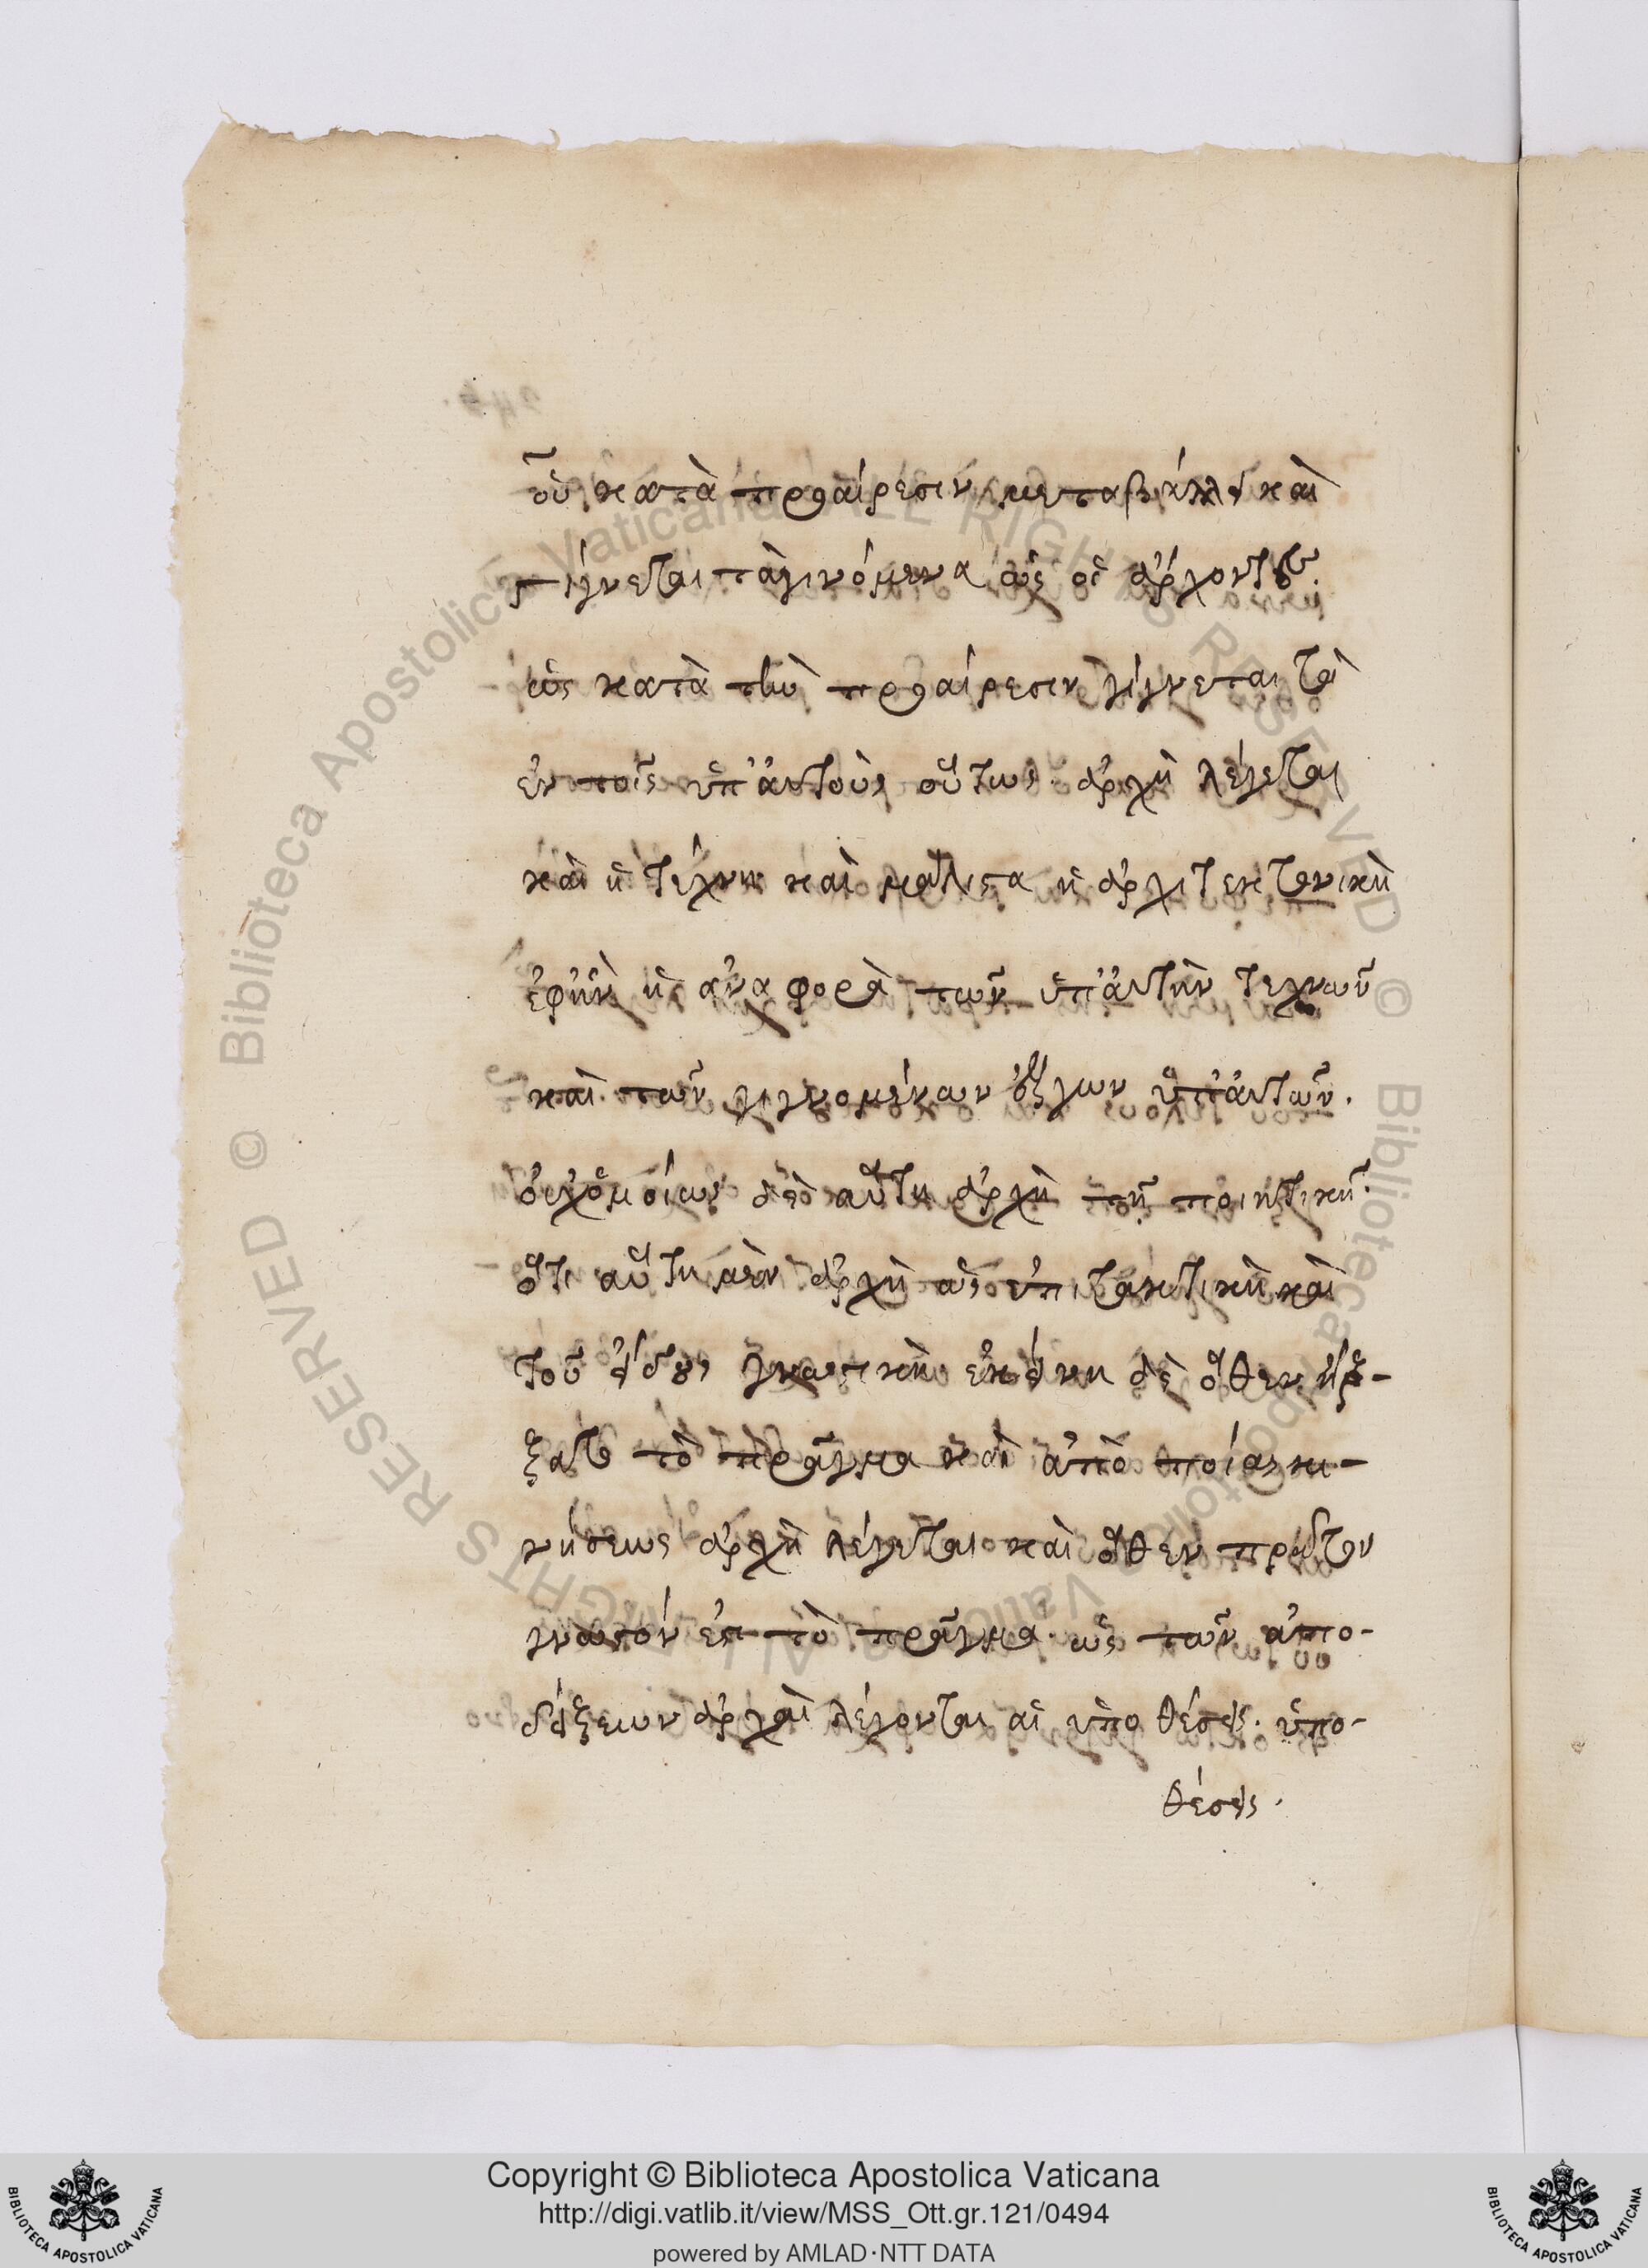 οὗ κατὰ προαίρεσιν μεταβάλλει καὶ
γίγνεται τὰ γινόμενα ὡς οἱ ἄρχοντες.
ὡς κατὰ τὴν προαίρεσιν γίγνεται τὰ
ἐν τοῖς ὑπ' αὐτοὺς οὕτως. ἀρχὴ λέγεται
καὶ ἡ τέχνη καὶ μάλιστα ἡ ἀρχιτεκτονικὴ
ἐφ' ἣν ἡ ἀναφορὰ τῶν ὑπ' αὐτὴν τεχνῶν
καὶ τῶν γιγνομένων ἔργων ὑπ' αὐτῶν.
οὐχ ὁμοίως δὲ αὕτη ἀρχὴ τῇ ποιητικῇ.
ὅτι αὕτη μὲν ἀρχὴ ὡς ἐπιτακτικὴ καὶ
τοῦ εἴδους γνωστικὴ ἐκείνη δὲ ὅθεν ἤρ-
ξατο τὸ πρᾶγμα καὶ ἀπὸ ποίας κι-
νήσεως ἀρχὴ λέγεται καὶ ὅθεν πρῶτον
γνωστόν ἐστι τὸ πρᾶγμα. ὡς τῶν ἀπο-
δείξεων ἀρχαὶ λέγονται αἱ ὑποθέσεις. ὑπο-
θέσεις.
Copyright © Biblioteca Apostolica Vaticana
http://digi.vatlib.it/view/MSS_Ott.gr.121/0494
powered by AMLAD·NTT DATA
BIBLIOTECA APOSTOLICA VATICANA
BIBLIOTECA APOSTOLICA VATICANA
© Biblioteca Apostolica Vaticana ALL RIGHTS RESERVED © Biblioteca Apostolica Vaticana ALL RIGHTS RESERVED